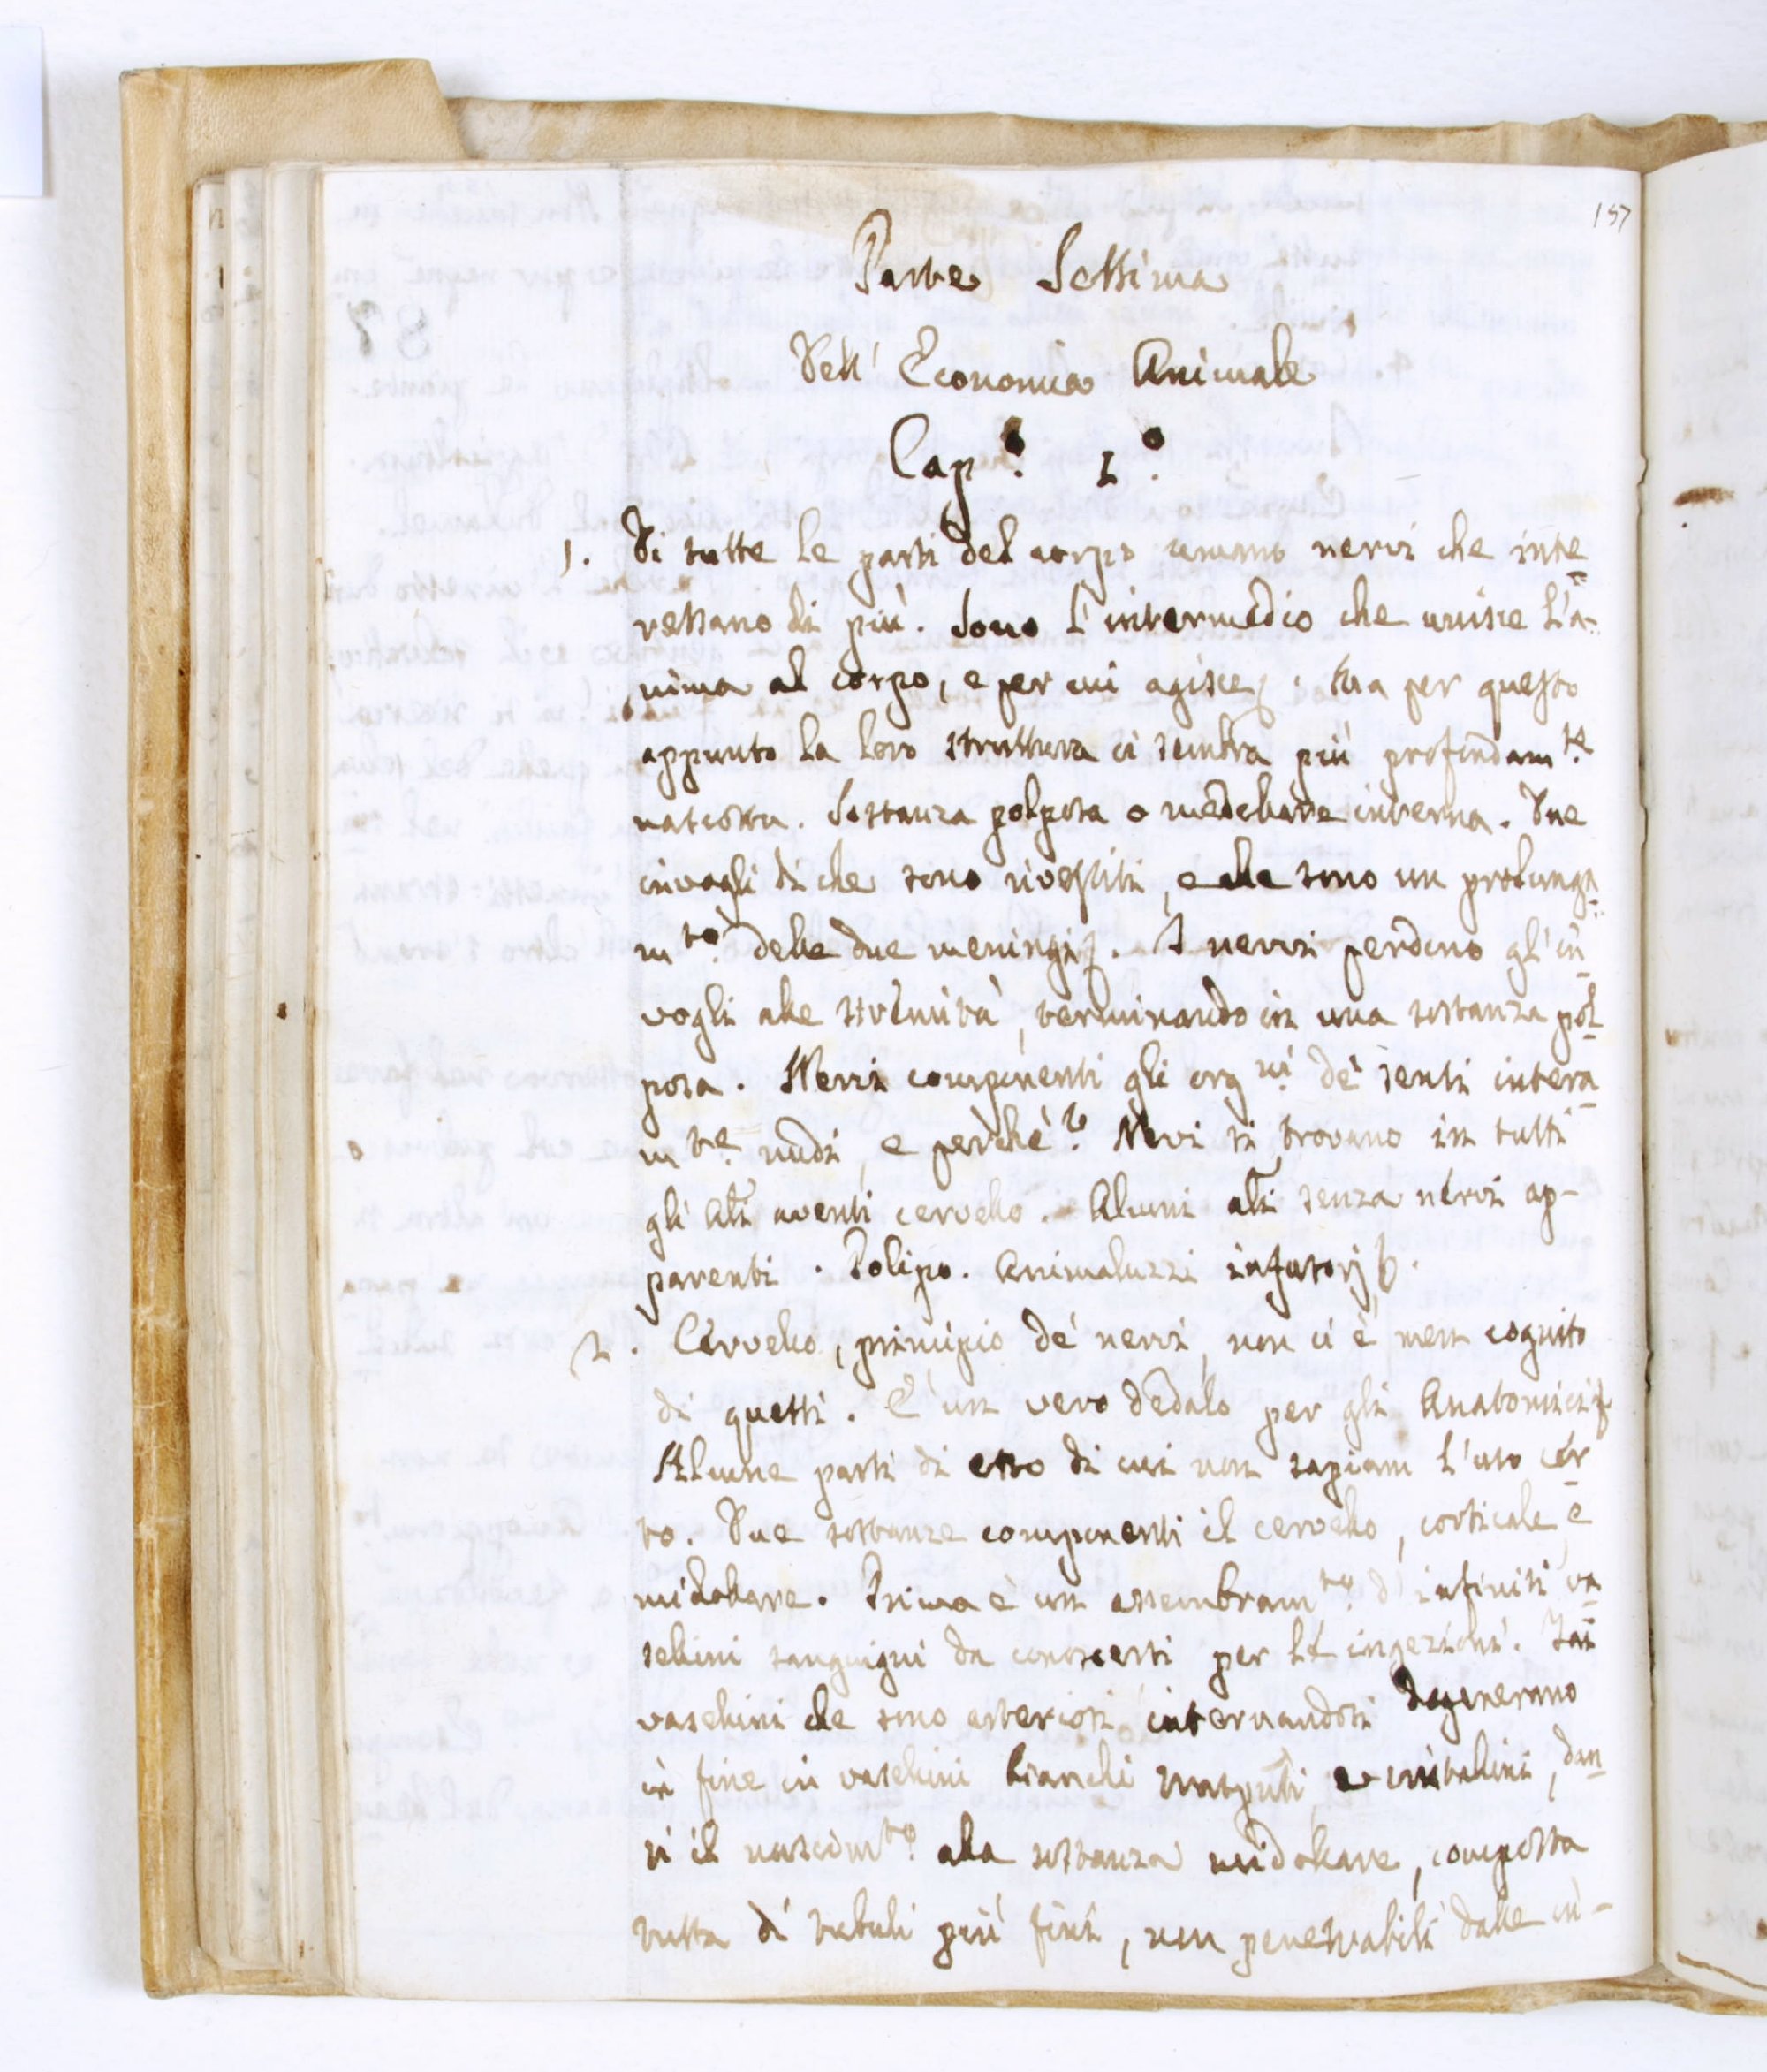 157
Parte Settima
Dell' Economia Animale
Cap.º 1.º
1. Di tutte le parti del corpo umano nervi che inte=
ressano di più. Sono l'intermedio che unisce l'a=
nima al corpo, e per cui agisce. Ma per questo
appunto la loro struttura ci sembra più profondam.te
nascosta. Sostanza polposa o medollare interna. Due
invogli di che sono rivestiti, e che sono un prolunga=
m.to delle due meningi. I nervi perdono gl'in=
vogli alle stremità, terminando in una sostanza pol=
posa. Nervi componenti gli org.ni de' sensi intera=
m.te nudi, e perchè? Nervi si trovano in tutti
gli Ali aventi cervello. Alcuni ali senza nervi ap-
parenti. Polipo. Animaluzzi infusorj.
2. Cervello, principio de' nervi, non ci è men cognito
di questi. È un vero dedalo per gli Anatomici
Alcune parti di esso di cui non sapiam l'uso cer=
to. Due sostanze componenti il cervello, corticale e
midollare. Prima è un assembram.to d'infiniti va=
sellini sanguigni da conoscersi per le injezioni. Tai
vasellini che sono arteriosi internandosi degenerano
in fine in vasellini bianchi trasparenti e cristallini, dan=
si il nascim.to alla sostanza midollare, composta
tutta di tubuli più fini, non penetrabili dalle in-